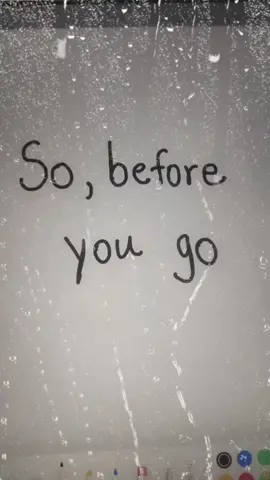 So, before
you go